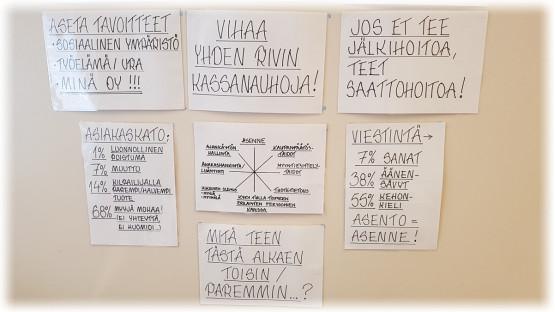 ASETA TAVOITTEET
• SOSIAALINEN YMPÄRISTÖ
• TYÖELÄMÄ / URA
• MINÄ OY !!!
VIHAA
YHDEN RIVIN
KASSANAUHOJA!
JOS ET TEE
JÄLKIHOITOA,
TEET
SAATTOHOITOA!
ASIAKASKATO:
1% LUONNOLLINEN
POISTUMA
7% MUUTTO
14% KILPAILIJALLA
PAREMPI/HALVEMPI
TUOTE
68% MYYJÄ MOKAA!
(EI YHTEYTTÄ,
EI HUOMIOI...)
ASENNE
AJANKÄYTÖN
HALLINTA
KAUPANPÄÄTÖ-
TAIDOT
ASIAKASHANKINTA/
MYYNTIESITTELY-
TAIDOT
TUOTETIETOUS
KYKY TULLA TOIMEEN
ERILAISTEN PERSOONIEN
KANSSA
VIESTINTÄ →
7% SANAT
38% ÄÄNEN-
SÄVYT
55% KEHON-
KIELI
ASENTO =
ASENNE!
MITÄ TEEN
TÄSTÄ ALKAEN
TOISIN /
PAREMMIN...?